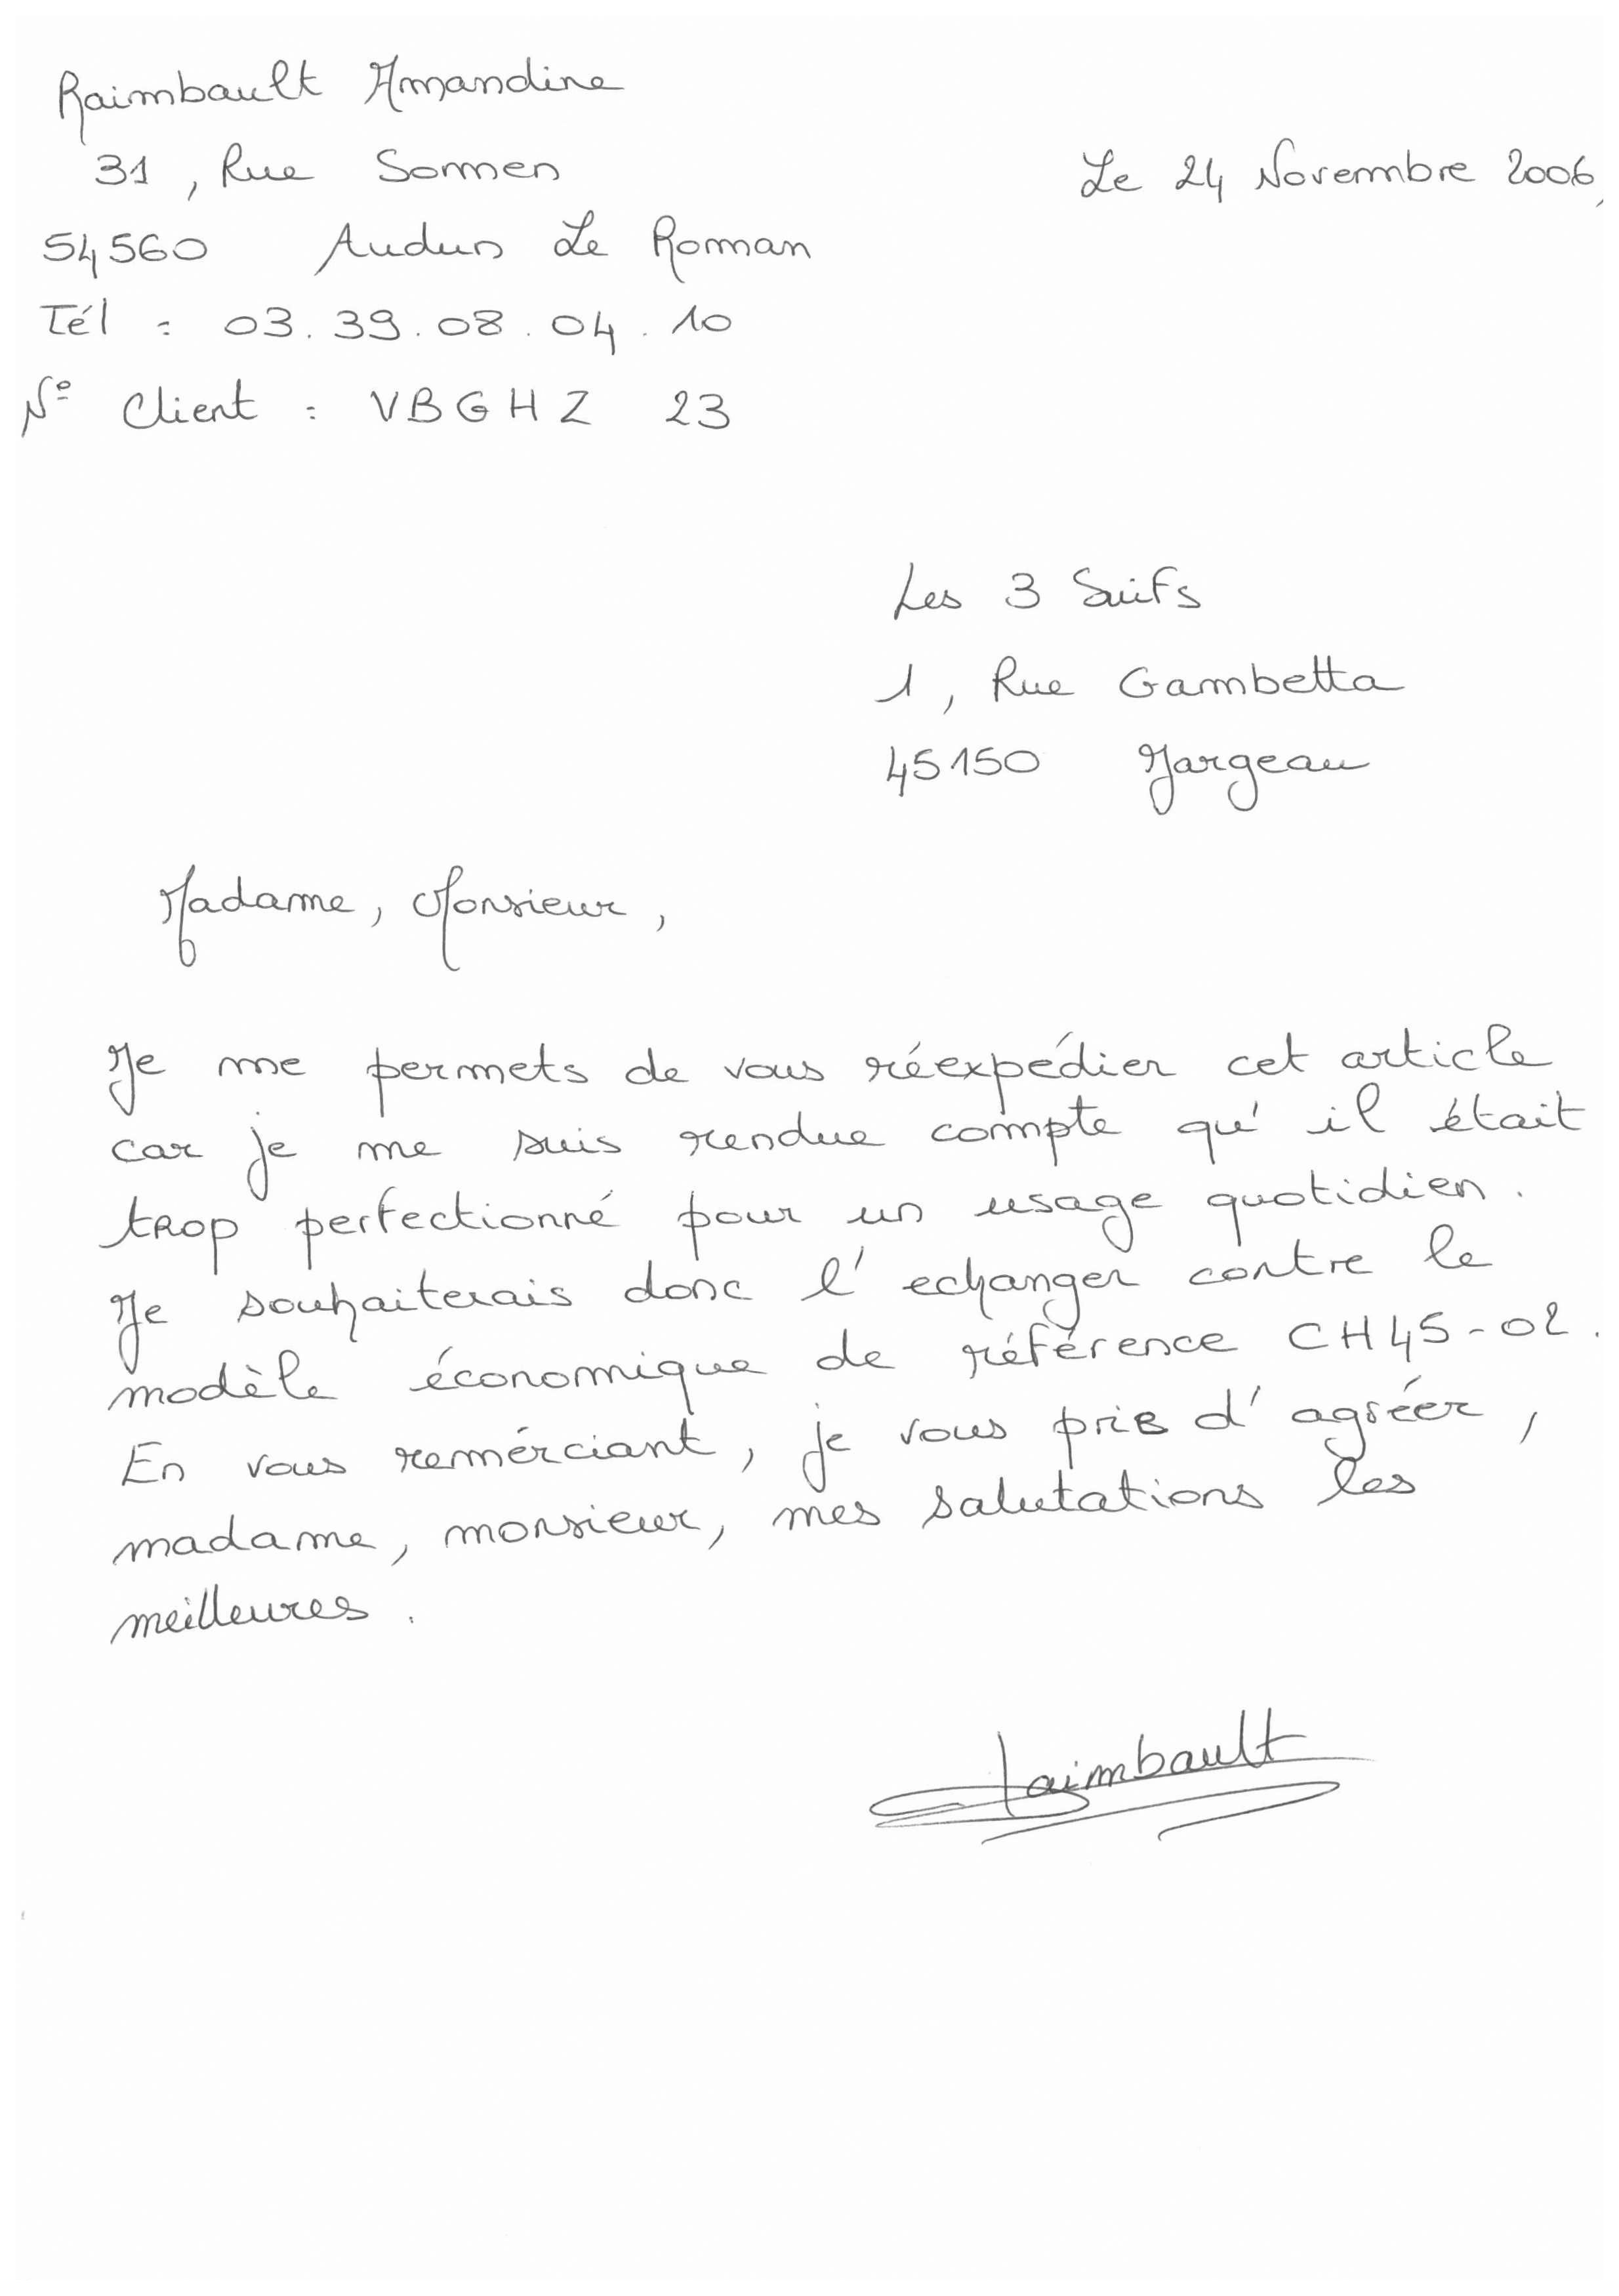 Raimbault Amandine
31, Rue Sommen
Le 24 Novembre 2006,
54560 Audun Le Roman
Tél : 03.39.08.04.10
N° Client : VBGHZ 23
Les 3 Suifs
1, Rue Gambetta
45150 Jargeau
Madame, Monsieur,
Je me permets de vous réexpédier cet article
car je me suis rendue compte qu'il était
trop perfectionné pour un usage quotidien.
Je souhaiterais donc l'echanger contre le
modèle économique de référence CH45-02.
En vous remérciant, je vous prie d'agréer,
madame, monsieur, mes salutations les
meilleures.
Raimbault